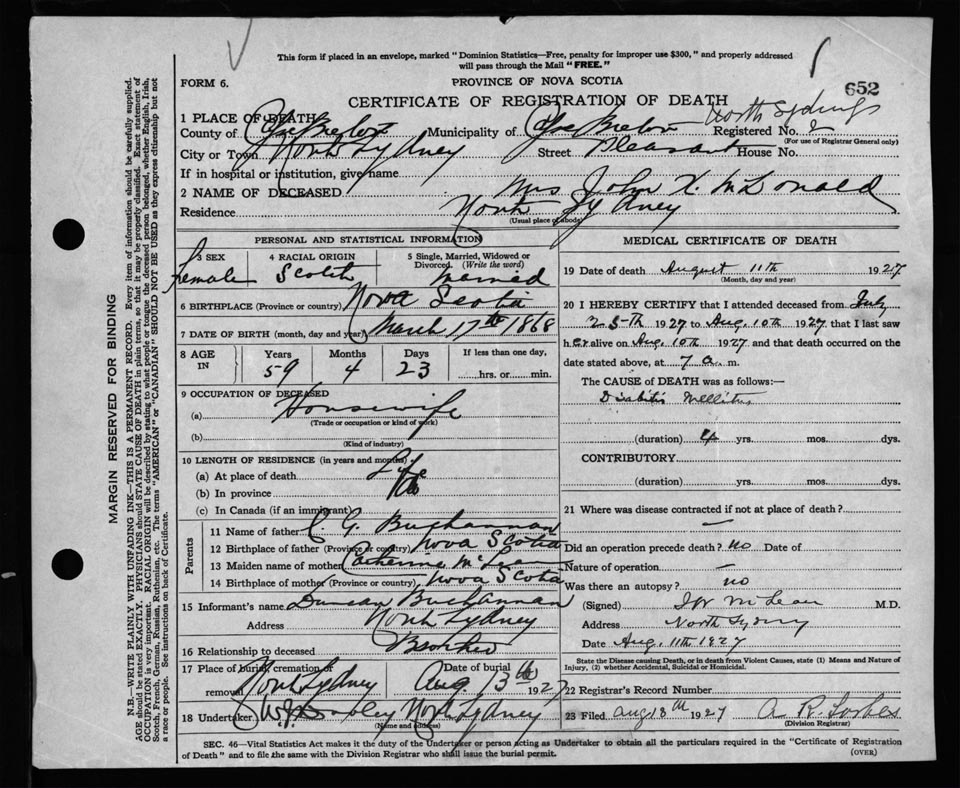 This form if placed in an envelope, marked "Dominion Statistics—Free, penalty for improper use $300," and properly addressed
will pass through the Mail "FREE."
FORM 6.
PROVINCE OF NOVA SCOTIA
652
CERTIFICATE OF REGISTRATION OF DEATH
North Sydney
1 PLACE OF DEATH
County of Cape Breton Municipality of Cape Breton Registered No. 2
(For use of Registrar General only)
City or Town North Sydney Street Pleasant House No.
If in hospital or institution, give name
2 NAME OF DECEASED Mrs John X. McDonald
Residence North Sydney
(Usual place of abode)
PERSONAL AND STATISTICAL INFORMATION
3 SEX 4 RACIAL ORIGIN 5 Single, Married, Widowed or
Divorced. (Write the word)
Female Scotch Married
6 BIRTHPLACE (Province or country) Nova Scotia
7 DATE OF BIRTH (month, day and year) March 17th 1868
8 AGE IN Years Months Days If less than one day,
59 4 23 hrs. or min.
9 OCCUPATION OF DECEASED
(a) Housewife
(Trade or occupation or kind of work)
(b)
(Kind of industry)
10 LENGTH OF RESIDENCE (in years and months)
(a) At place of death Life
(b) In province
(c) In Canada (if an immigrant)
Parents
11 Name of father C. G. Buchannan
12 Birthplace of father (Province or country) Nova Scotia
13 Maiden name of mother Catherine
14 Birthplace of mother (Province or country) Nova Scotia
15 Informant's name Duncan Buchannan
Address North Sydney
16 Relationship to deceased Brother
17 Place of burial, cremation or Date of burial
removal North Sydney Aug. 13th 1927
18 Undertaker North Sydney
(Name and address)
MEDICAL CERTIFICATE OF DEATH
19 Date of death August 11th 1927
(Month, day and year)
20 I HEREBY CERTIFY that I attended deceased from July
25th 1927 to Aug. 10th 1927 that I last saw
her alive on Aug. 10th 1927 and that death occurred on the
date stated above, at 7 a. m.
The CAUSE of DEATH was as follows:—
Diabitis Mellitus
(duration) 4 yrs. mos. dys.
CONTRIBUTORY
(duration) yrs. mos. dys.
21 Where was disease contracted if not at place of death?
—
Did an operation precede death? no Date of
Nature of operation —
Was there an autopsy? no
(Signed) McLean M.D.
Address North Sydney
Date Aug. 11th 1927
State the Disease causing Death, or in death from Violent Causes, state (1) Means and Nature of
Injury, (2) whether Accidental, Suicidal or Homicidal.
22 Registrar's Record Number
23 Filed Aug 18th 1927 A. R. Forbes
(Division Registrar)
SEC. 46—Vital Statistics Act makes it the duty of the Undertaker or person acting as Undertaker to obtain all the particulars required in the "Certificate of Registration
of Death" and to file the same with the Division Registrar who shall issue the burial permit.
(OVER)
MARGIN RESERVED FOR BINDING
N.B.—WRITE PLAINLY WITH UNFADING INK—THIS IS A PERMANENT RECORD. Every item of information should be carefully supplied.
AGE should be stated EXACTLY. PHYSICIANS should STATE CAUSE OF DEATH in plain terms, so that it may be properly classified. Exact statement of
OCCUPATION is very important. RACIAL ORIGIN will be described by stating to what people or tongue the deceased person belonged, whether English, Irish,
Scotch, French, German, Russian, Ruthenian, etc. The terms "AMERICAN" or "CANADIAN" SHOULD NOT BE USED as they express citizenship but not
a race or people. See instructions on back of Certificate.